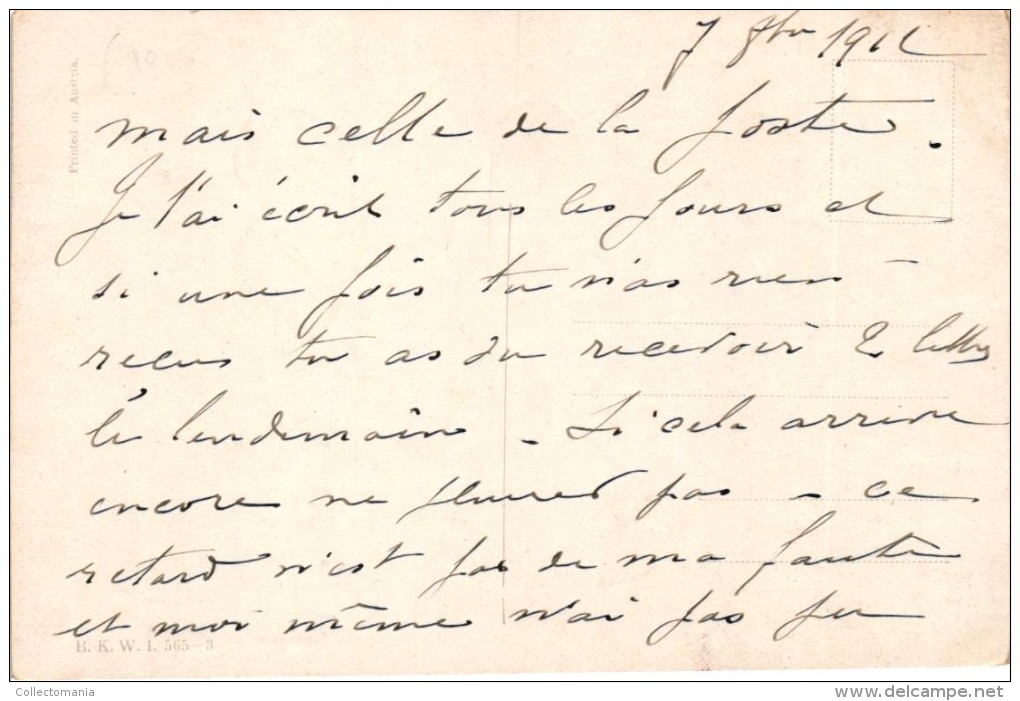 7 9bre 1912
Printed in Austria.
mais celle de la poste.
Je t'ai écrit tous les jours et
si une fois tu n'as rien
recus tu as du recevoir 2 lettres
le lendemain - Si cela arrive
encore ne pleures pas - ce
retard n'est pas de ma faute
et moi même n'ai pas pu
B. K. W. I. 565-3
Collectomania
www.delcampe.net